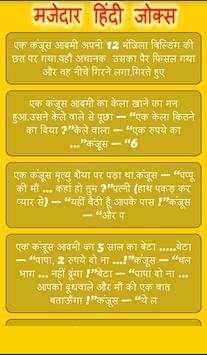 मजेदार हिंदी जोक्स
एक कंजूस आदमी अपनी 12 मंजिला बिल्डिंग की
छत पर गया.वहाँ अचानक उसका पैर फिसल गया
और वह नीचे गिरने लगा.गिरते हुए
एक कंजूस आदमी का केला खाने का मन
हुआ.उसने केले वाले से पूछा — “एक केला कितने
का दिया ?”केले वाला — “एक रुपये का
...”कंजूस — “6
एक कंजूस मृत्यु शैय्या पर पड़ा था.कंजूस — “पप्पू
की माँ ... कहां हो तुम ?”पत्नी (हाथ पकड़ कर
प्यार से) — “यहीं बैठी हूँ आपके पास !”कंजूस —
“और प
एक कंजूस आदमी का 5 साल का बेटा .....बेटा
— “पापा, 2 रुपये दो ना ...!”कंजूस — “चल
भाग ... नहीं दूंगा !”बेटा — “पापा दो ना ...
आपको दूधवाले और माँ की एक बात
बताऊँगा !”कंजूस — “ये ल